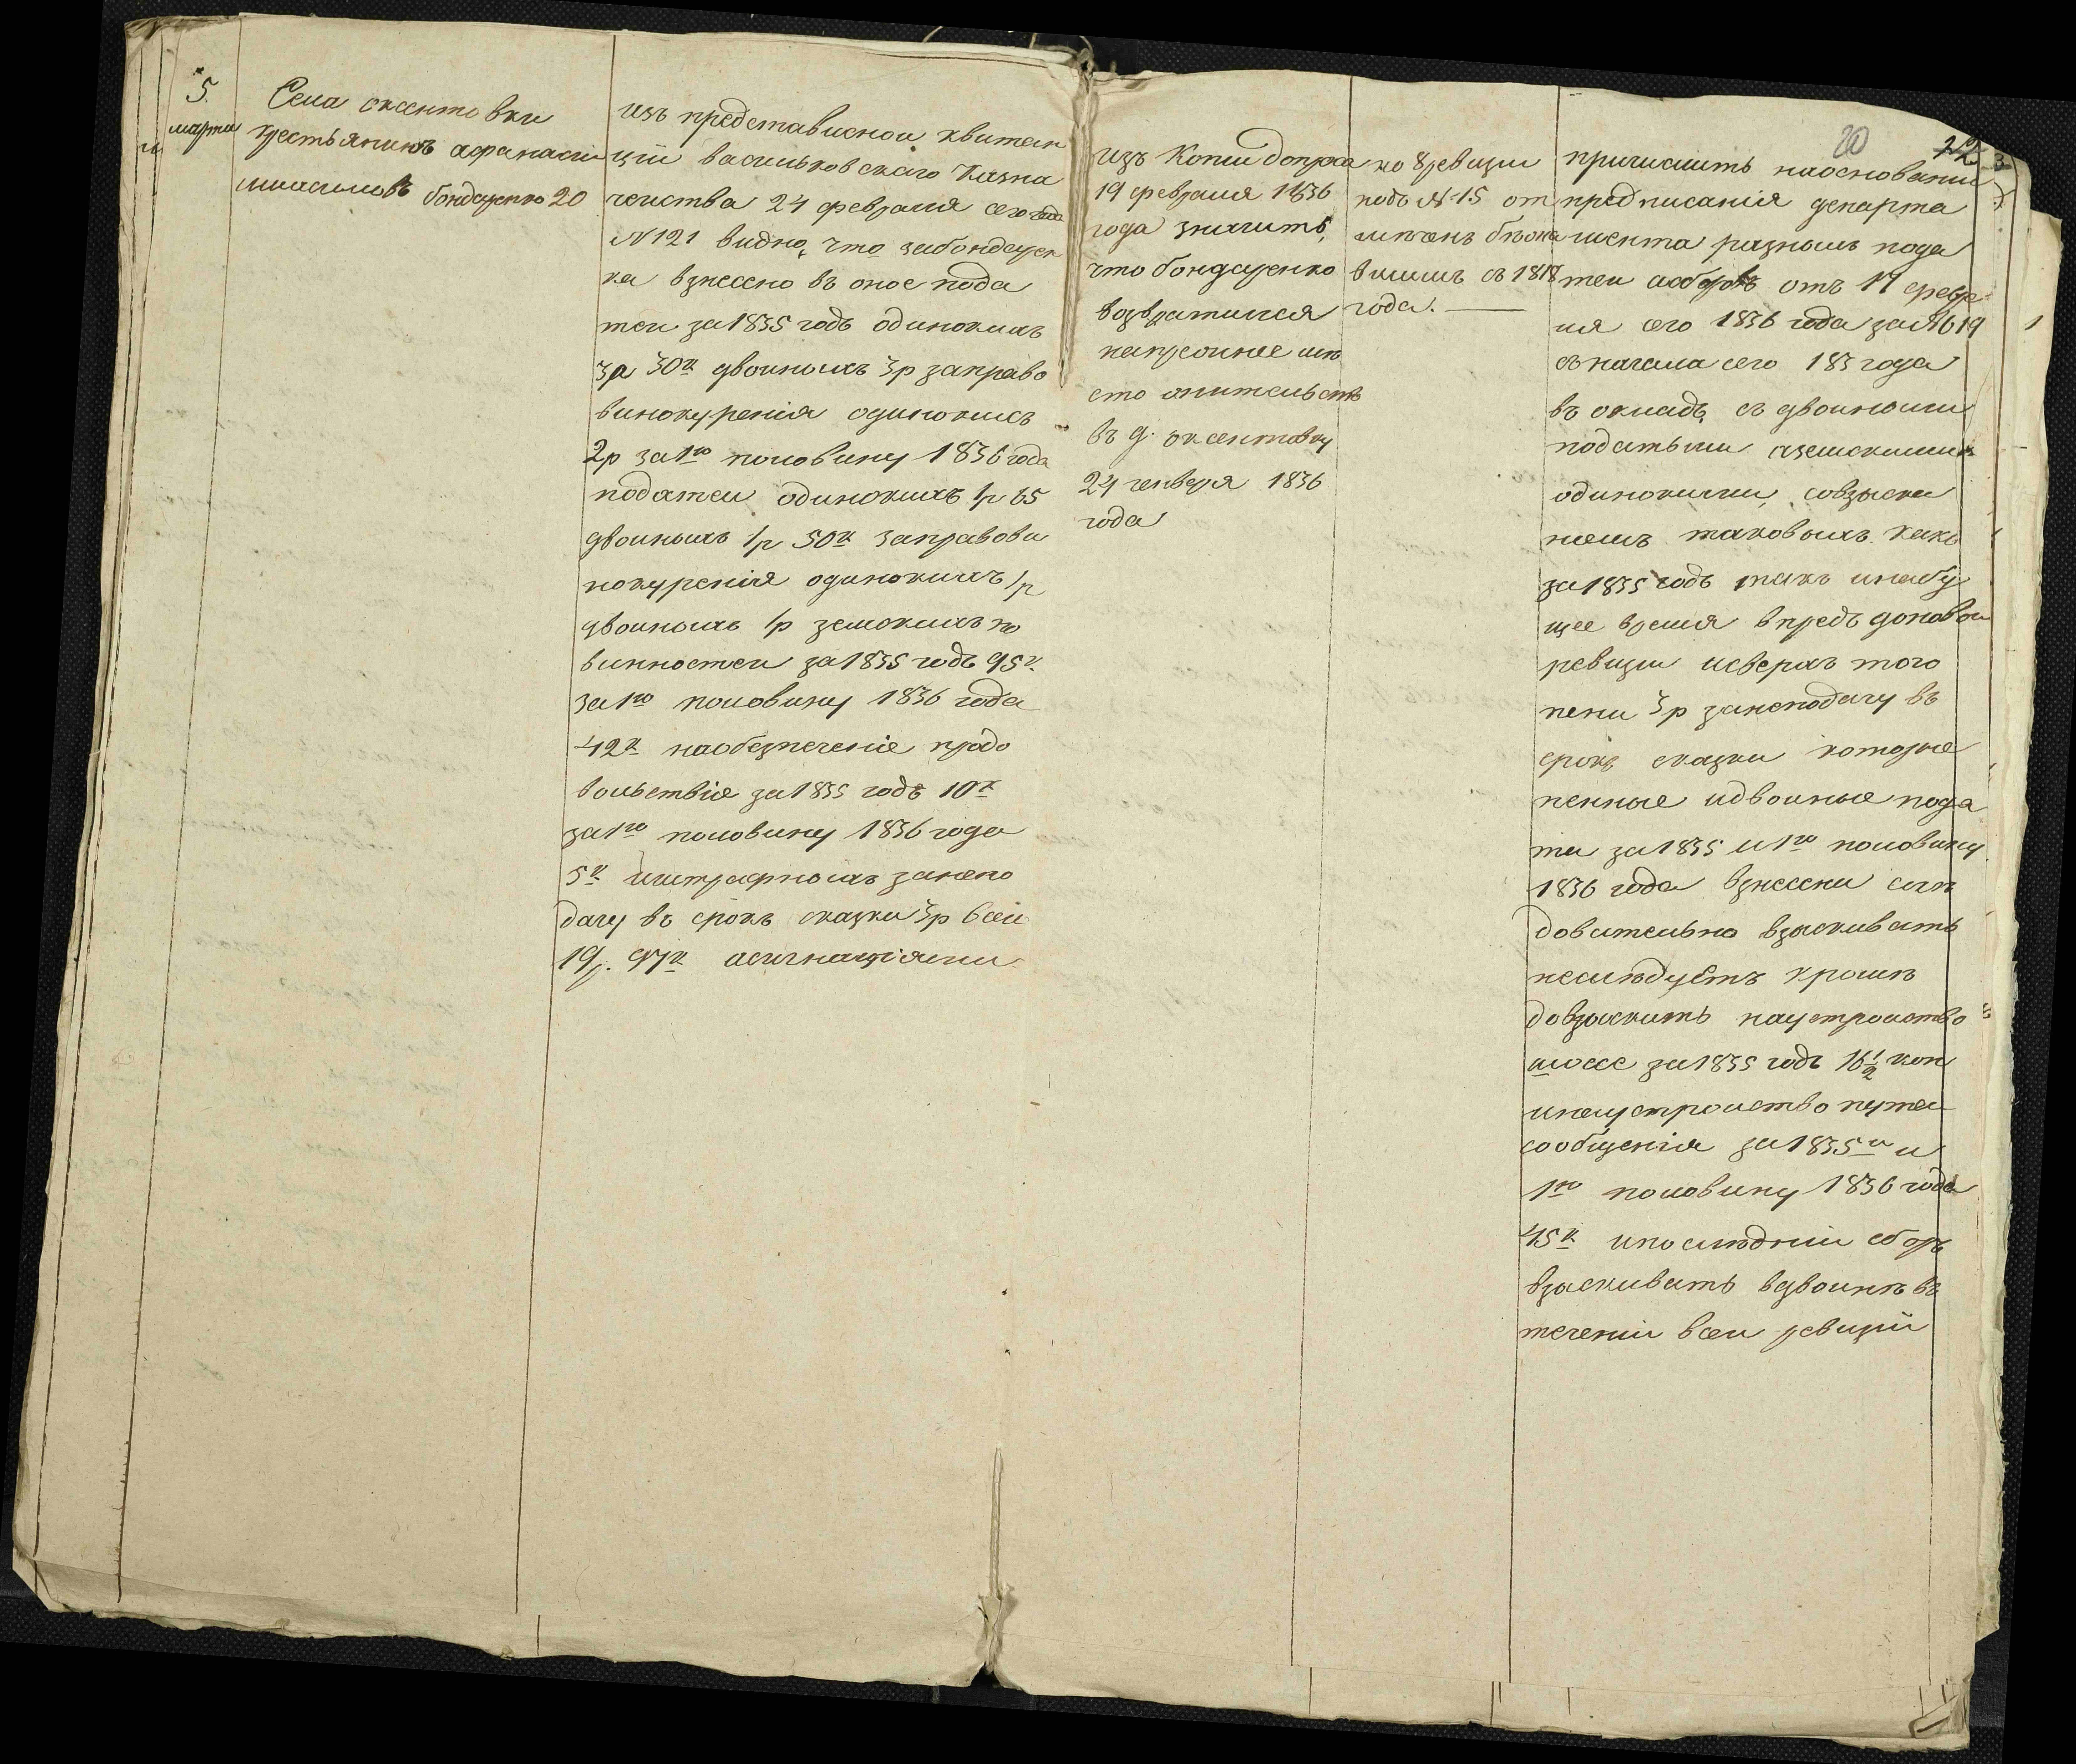 5.
марта
Села оксентовки
крестьянинъ афанасіи
бондаренко 20
изъ представленои квитан
ціи васильковскаго Казна
чеиства 24 февраля сего года
№ 121 видно, что забондарен
ка взнесено въ оное пода
теи за 1835 годъ одинокихъ
3р 30к двоиныхъ 3р заправо
винокуренія одинокихъ
2р за 1ю половину 1836 года
податеи одинокихъ 1р 65
двоиныхъ 1р 50к заправови
нокуренія одинокихъ 1р
двоиныхъ 1р земскихъ по
винностеи за 1835 годъ 95к
за 1ю половину 1836 года
42к наобезпеченіе продо
вольствія за 1835 годъ 10к
за 1ю половину 1836 года
5к иштрафныхъ занепо
дачу въ срокъ сказки 3р всего
19р. 97к асигнаціями
изъ Копіи допроса
19 февраля 1836
года значитъ,
что бондаренко
возвратился
напрежнее мѣ
сто жительств
въ д. оксентовку
24 генваря 1836
года
по 8 ревизіи
подъ № 15 от
мѣченъ бѣжа
вшимъ съ 1818
года.
20
22
причислить наоснованіи
предписанія департа
мента разныхъ пода
теи исборовъ отъ 17 февр
ля сего 1836 года за № 619
съ начала сего 183 года
въ окладъ съ двоиными
податьми иземскими
одинокими, совзыска
ніемъ таковыхъ какъ
за 1835 годъ такъ инабу
щее время впредь доновои
ревизіи исверхъ того
пени 3р занеподачу въ
срокъ сказки которые
пенные идвоиные пода
ти за 1835 и 1ю половину
1836 года взнесены слѣ
довательно взыскивать
неслѣдуетъ кромѣ
довзыскить наустроиство
шоссе за 1835 годъ 16½ коп
инаустроиство путеи
сообщенія за 1835 и и
1ю половину 1836 года
45к ипослѣдніи сборъ
взыскивать вдвоинѣ въ
теченіи всеи ревизіи